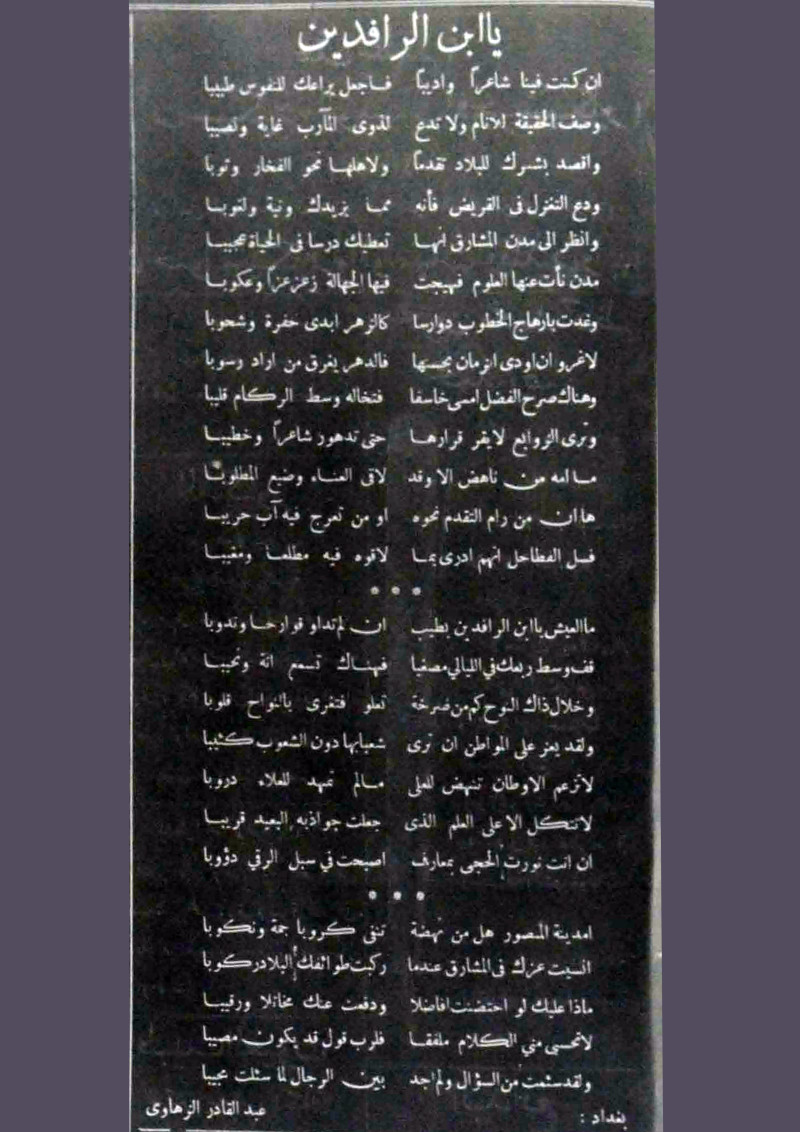 يا ابن الرافدين
ان كنت فينا شاعراً واديباً فاجعل يراعك للنفوس طبيبا
وصف الحقيقة للانام ولا تدع لذوى المآرب غاية ونصيبا
واقصد بشعرك للبلاد تقدماً ولاهلها نحو الفخار وثوبا
ودع التغزل فى القريض فأنه مما يزيدك ونية ولغوبا
وانظر الى مدن المشارق انها تعطيك درسا فى الحياة عجيبا
مدن نأت عنها العلوم فهيجت فيها الجهالة زعزعزاً وعكوبا
وغدت بارهاج الخطوب دوارسا كالزهر ابدى خفرة وشحوبا
لاغرو ان اودى الزمان بحسنها فالدهر يغرق من اراد رسوبا
وهناك صرح الفضل امسى خاسفا فتخاله وسط الركام قليبا
وترى الزوابع لايقر قرارها حتى تدهور شاعراً وخطيبا
ما امه من ناهض الا وقد لاقى العناء وضيع المطلوبا
ها ان من رام التقدم نحوه او من تعرج فيه آب حريبا
فسل الفطاحل انهم ادرى بما لاقوه فيه مطلعا ومغيبا
* * *
ماالعيش ياابن الرافدين بطيب ان لم تداو قوارحا وندوبا
قف وسط ربعك في الليالي مصغيا فهناك تسمع انة ونحيبا
وخلال ذاك النوح كم من صرخة تعلو فتفرى بالنواح قلوبا
ولقد يعز على المواطن ان ترى شعبابها دون الشعوب كئيبا
لاتزعم الاوطان تنهض للعلى مالم تمهد للعلاء دروبا
لاتتكل الا على العلم الذى جعلت جواذبه البعيد قريبا
ان انت نورت الحجى بمعارف اصبحت في سبل الرقي دؤوبا
* * *
امدينة المنصور هل من نهضة تنفى كروبا جمة ونكوبا
انسيت عزك فى المشارق عندما ركبت طوائفك البلاد ركوبا
ماذا عليك لو احتضنت افاضلا ودفعت عنك مخاتلا ورقيبا
لاتحسبى مني الكلام ملفقا فلرب قول قد يكون مصيبا
ولقد سئمت من السؤال ولم اجد بين الرجال لما سئلت مجيبا
بغداد : عبد القادر الزهاوى